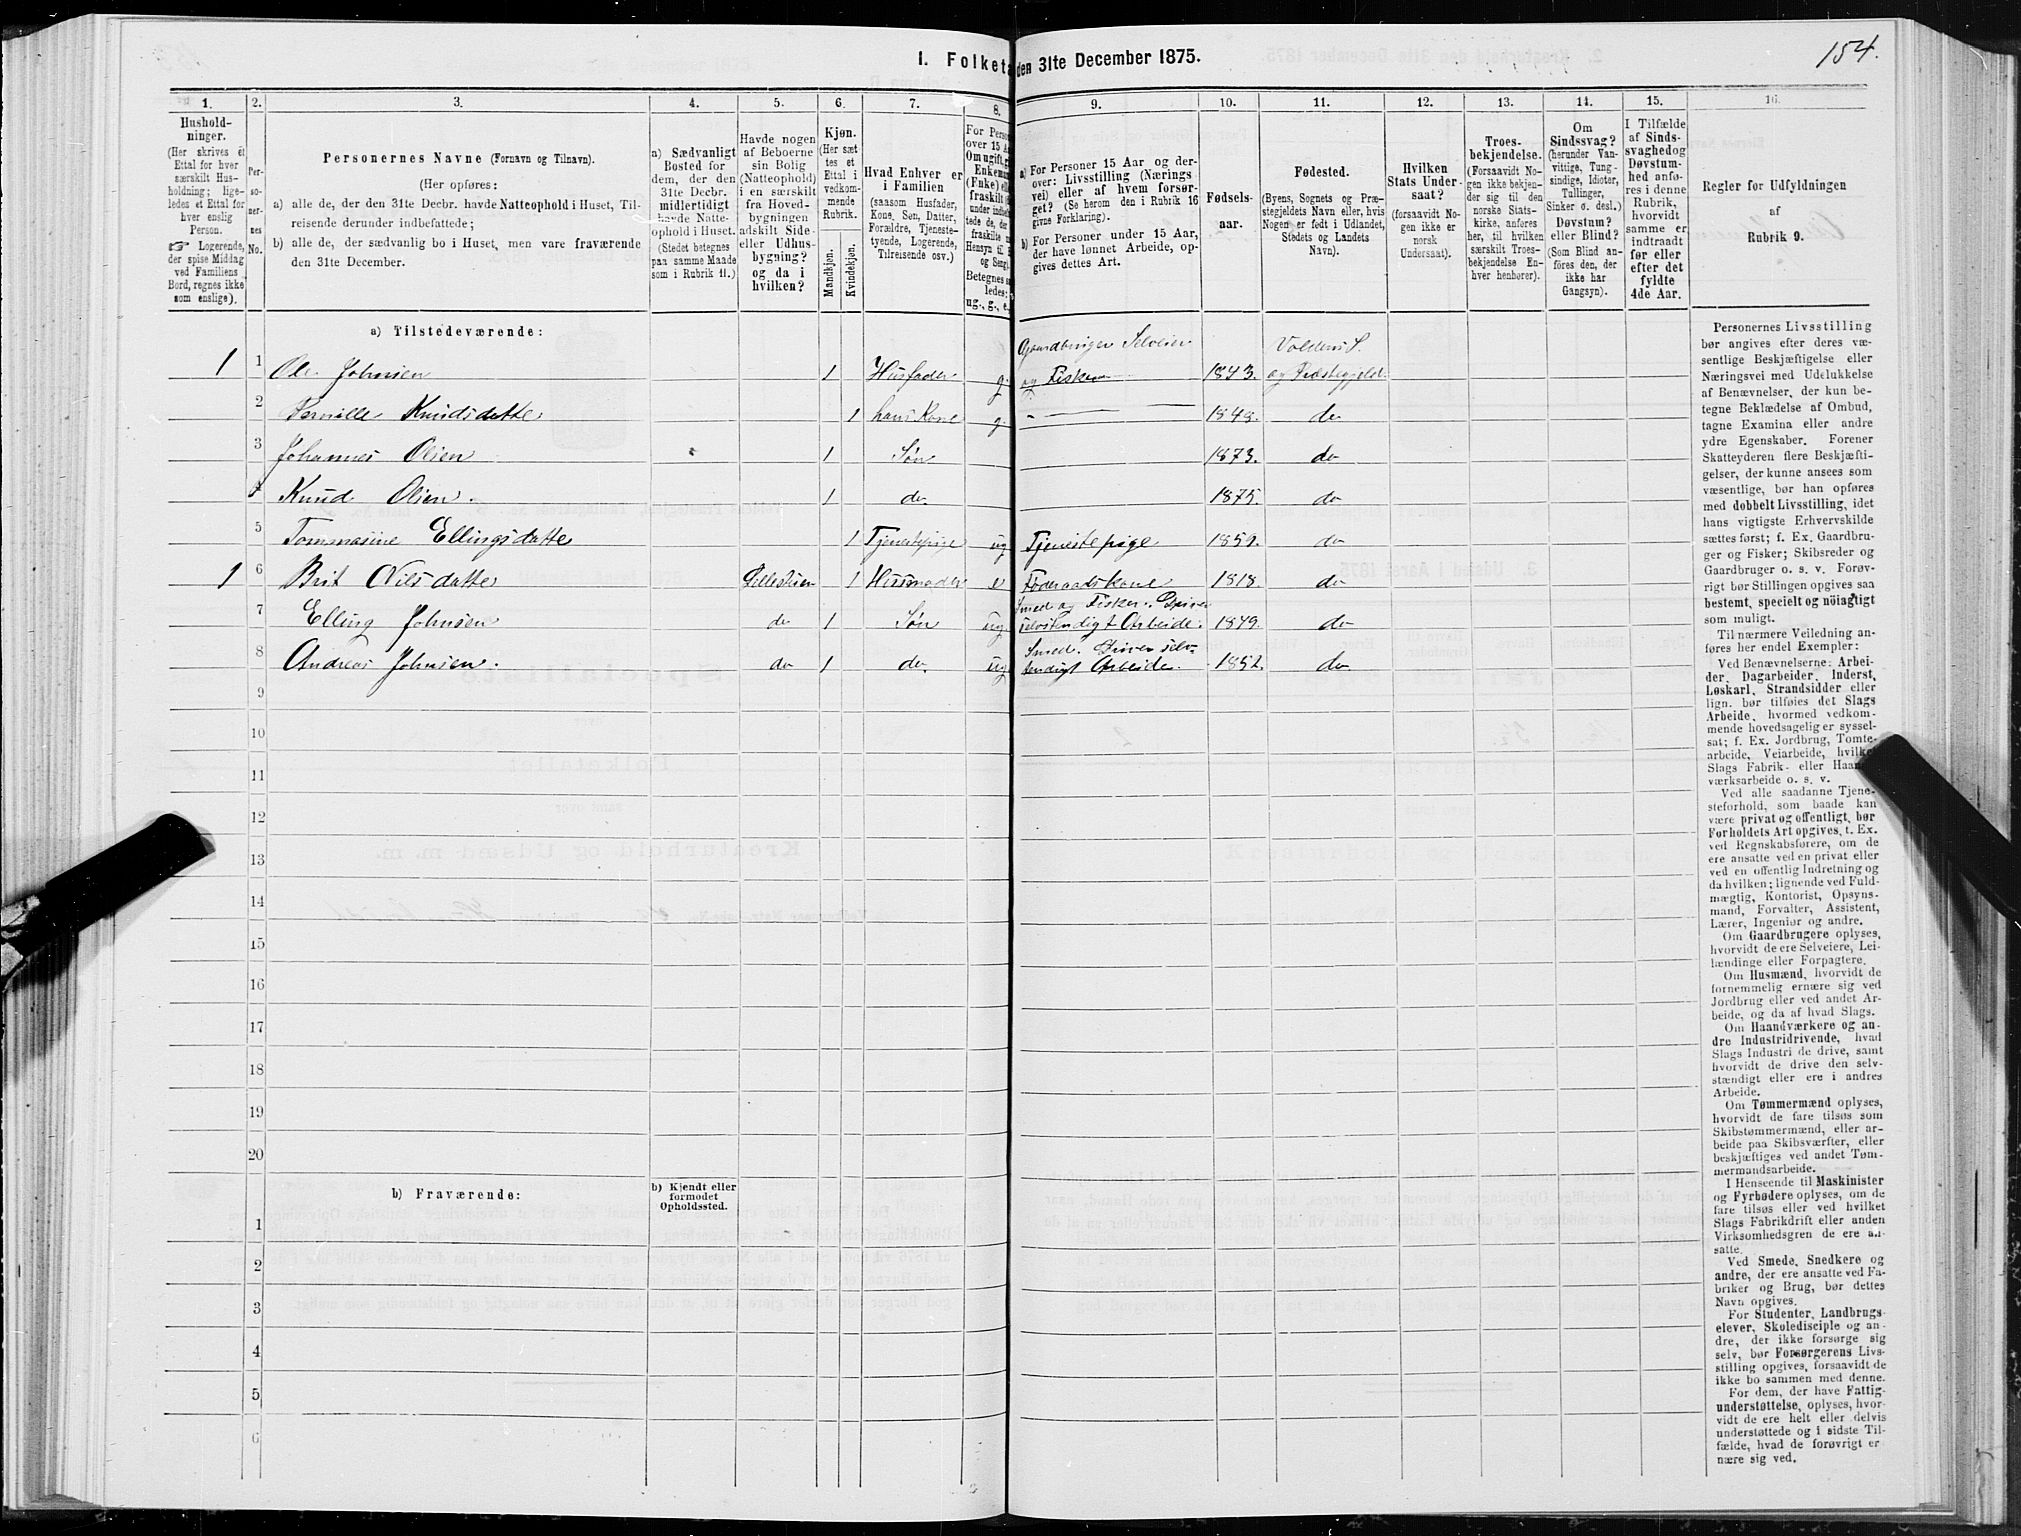 154.
I. Folketa den 31te December 1875.
1. 2. 3. 4. 5. 6. 7. 8. 9. 10. 11. 12. 13. 14. 15. 16.
Hushold-
ninger.
(Her skrives ét
Ettal for hver
særskilt Hus-
holdning; lige-
ledes et Ettal for
hver enslig
Person.
☞ Logerende,
der spise Middag
ved Familiens
Bord, regnes ikke
som enslige).
Per-
so-
ner-
nes
No.
Personernes Navne (Fornavn og Tilnavn).
(Her opføres:
a) alle de, der den 31te Decbr. havde Natteophold i Huset, Til-
reisende derunder indbefattede;
b) alle de, der sædvanlig bo i Huset, men vare fraværende
den 31te December.
a) Sædvanligt
Bosted for
dem, der den
31te Decbr.
midlertidigt
havde Natte-
ophold i Huset.
(Stedet betegnes
paa samme Maade
som i Rubrik 11.)
Havde nogen
af Beboerne
sin Bolig
(Natteophold)
i en særskilt
fra Hoved-
bygningen
adskilt Side-
eller Udhus-
bygning?
og da i
hvilken?
Kjøn.
(Her sæt
tes et
Ettal i
vedkom-
mende
Rubrik.
Mandkjøn.
Kvindekjøn.
Hvad Enhver er
i Familien
(saasom Husfader,
Kone, Søn, Datter,
Forældre, Tjeneste-
tyende, Logerende,
Tilreisende osv.)
For Perso
over 15 A
Om ugift, g
Enkem
(Enke) el
fraskilt
Betegnes s
ledes:
ug., g., e.,
a) For Personer 15 Aar og der-
over: Livsstilling (Nærings
vei) eller af hvem forsør-
get? (Se herom den i Rubrik 16
givne Forklaring).
b) For Personer under 15 Aar,
der have lønnet Arbeide, op-
gives dettes Art.
Fødsels-
aar.
Fødested.
(Byens, Sognets og Præ-
stegjeldets Navn eller, hvis
Nogen er født i Udlandet,
Stedets og Landets
Navn).
Hvilken
Stats Under-
saat?
(forsaavidt No-
gen ikke er
norsk
Undersaat).
Troes-
bekjendelse.
(Forsaavidt No-
gen ikke bekjen-
der sig til den
norske Stats-
kirke, anføres
her, til hvilken
særskilt Troes-
bekjendelse En-
hver henhører).
Om
Sindssvag?
(herunder Van-
vittige, Tung-
sindige, Idioter,
Tullinger,
Sinker o. desl.)
Døvstum?
eller Blind?
(Som Blind an-
føres den, der
ikke har
Gangsyn).
I Tilfælde
af Sinds-
svaghedog
Døvstum-
hed anfø-
res i denne
Rubrik,
hvorvidt
samme er
indtraadt
før eller
efter det
fyldte
4de Aar.
Regler for Udfyldningen
af
Rubrik 9.
a) Tilstedeværende:
Gaardbruger Selveier Voldens S.
1 1 Ole Johnsen 1 Husfader g. og Fisker 1843. og Præstegjeld
2 Pernille Knudsdatter 1 hans Kone g. " 1848. do
3 Johannes Olsen 1 Søn 1873. do
4 Knud Olsen. 1 do 1875. do
5 Tommasine Ellingsdatter 1 Tjenestepige ug Tjenestepige 1859. do
1 6 Brit Nilsdatter 1 Husmoder e Føderaadskone 1818. do
Smed og Fisker. Driver
7 Elling Johnsen do 1 Søn ug. selvstendigt Arbeide. 1849. do
Smed. Driver selv-
8 Andreas Johnsen. do 1 do. ug stendigt Arbeide. 1852. do
9
10
11
12
13
14
15
16
17
18
19
20
b) Fraværende:
b) Kjendt eller
formodet
Opholdssted.
1
2
3
4
5
6
Personernes Livsstilling
bør angives efter deres væ-
sentlige Beskjæftigelse eller
Næringsvei med Udelukkelse
af Benævnelser, der kun be-
tegne Beklædelse af Ombud,
tagne Examina eller andre
ydre Egenskaber. Forener
Skatteyderen flere Beskjæfti-
gelser, der kunne ansees som
væsentlige, bør han opføres
med dobbelt Livsstilling, idet
hans vigtigste Erhvervskilde
sættes først; f. Ex. Gaardbru-
ger og Fisker; Skibsreder og
Gaardbruger o. s. v. Forøv-
rigt bør Stillingen opgives saa
bestemt, specielt og nöiagtigt
som muligt.
Til nærmere Veiledning an-
føres her endel Exempler:
Ved Benævnelserne: Arbei-
der, Dagarbeider, Inderst,
Løskarl, Strandsidder eller
lign. bør tilføies det Slags
Arbeide, hvormed vedkom-
mende hovedsagelig er syssel-
sat; f. Ex. Jordbrug, Tomte-
arbeide, Veiarbeide, hvilket
Slags Fabrik- eller Haand-
værksarbeide o. s. v.
Ved alle saadanne Tjene-
steforhold, som baade kan
være privat og offentligt, bør
Forholdets Art opgives, t. Ex.
ved Regnskabsførere, om de
ere ansatte ved en privat eller
ved en offentlig Indretning og
da hvilken; lignende ved Fuld-
mægtig, Kontorist, Opsyns-
mand, Forvalter, Assistent,
Lærer, Ingeniør og andre.
Om Gaardbrugere oplyses,
hvorvidt de ere Selveiere, Lei-
lændinge eller Forpagtere.
Om Husmænd, hvorvidt de
fornemmelig ernære sig ved
Jordbrug eller ved andet Ar-
beide, og da af hvad Slags.
Om Haandværkere og an-
dre Industridrivende, hvad
Slags Industri de drive, samt
hvorvidt de drive den selv-
stændigt eller ere i andres
Arbeide.
Om Tømmermænd oplyses,
hvorvidt de fare tilsøs som
Skibstømmermænd, eller ar-
beide paa Skibsværfter, eller
beskjæftiges ved andet Tøm-
mermandsarbeide.
I Henseende til Maskinister
og Fyrbødere oplyses, om de
fare tilsøs eller ved hvilket
Slags Fabrikdrift eller anden
Virksomhedsgren de ere an-
satte.
Ved Smede, Snedkere og
andre, der ere ansatte ved Fa-
briker og Brug, bør dettes
Navn opgives.
For Studenter, Landbrugs-
elever, Skoledisciple og an-
dre, der ikke forsørge sig
selv, bør Forsørgerens Livs-
stilling opgives, forsaavidt de
ikke bo sammen med denne.
For dem, der have Fattig-
understøttelse, oplyses, hvor-
vidt de ere helt eller delvis
understøttede og i sidste Til-
fælde, hvad de forøvrigt er
nære sig ved.